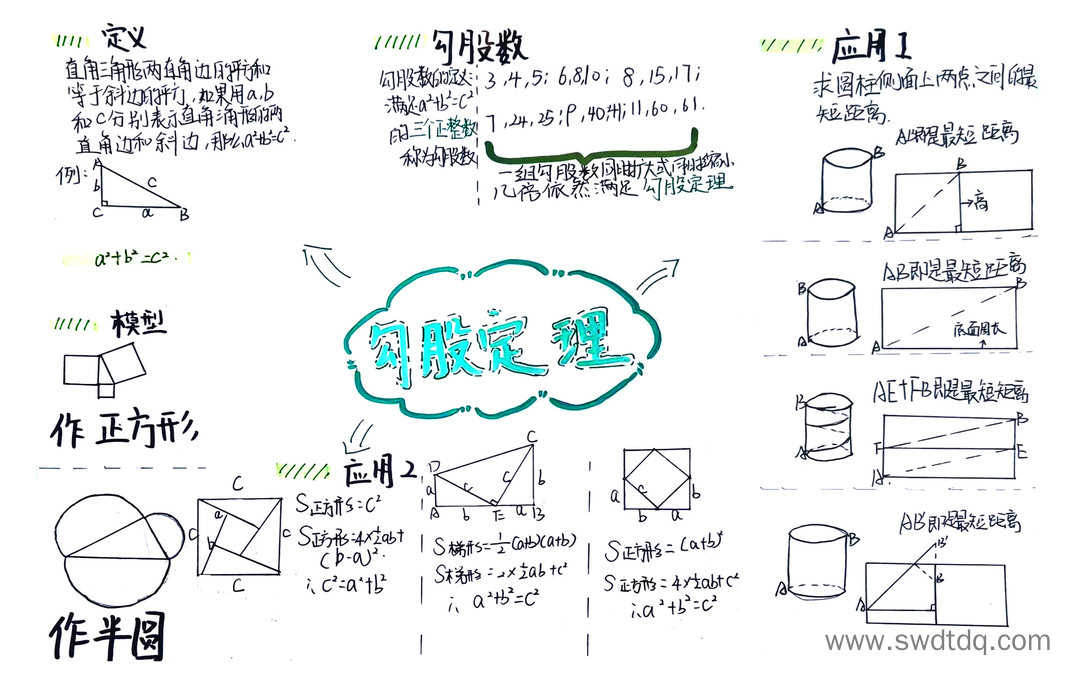 定义
直角三角形两直角边的平方和
等于斜边的平方,如果用a,b
和C分别表示直角三角形的两
直角边和斜边,那么a²+b²=c².
例:
A
b
c
C
a
B
a²+b²=c².
模型
作正方形,
作半圆
勾股数
勾股数的定义:
满足a²+b²=c²
的三个正整数
称为勾股数
3,4,5; 6,8,10; 8,15,17;
7,24,25; 9,40,41; 11,60,61.
一组勾股数同时扩大或同时缩小
几倍依然满足 勾股定理.
勾股定理
应用1
求圆柱侧面上两点之间的最
短距离.
AB即是最短距离
B
A
B
→高
A
AB即是最短距离
B
A
B
底面周长
A
AE+FB即是最短距离
B
A
B
F
E
A
AB'即是最短距离
B
A
B'
B
A
应用2
C
a
b
C
C
C
S正方形=c²
S正方形=4×½ab+
(b-a)².
∴c²=a²+b²
D
C
a
c
c
b
A
b
E
a
B
S梯形=½(a+b)(a+b)
S梯形=2×½ab+½c²
∴ a²+b²=c²
a
c
b
b
a
S正方形=(a+b)²
S正方形=4×½ab+c²
∴a²+b²=c²
www.swdtdq.com